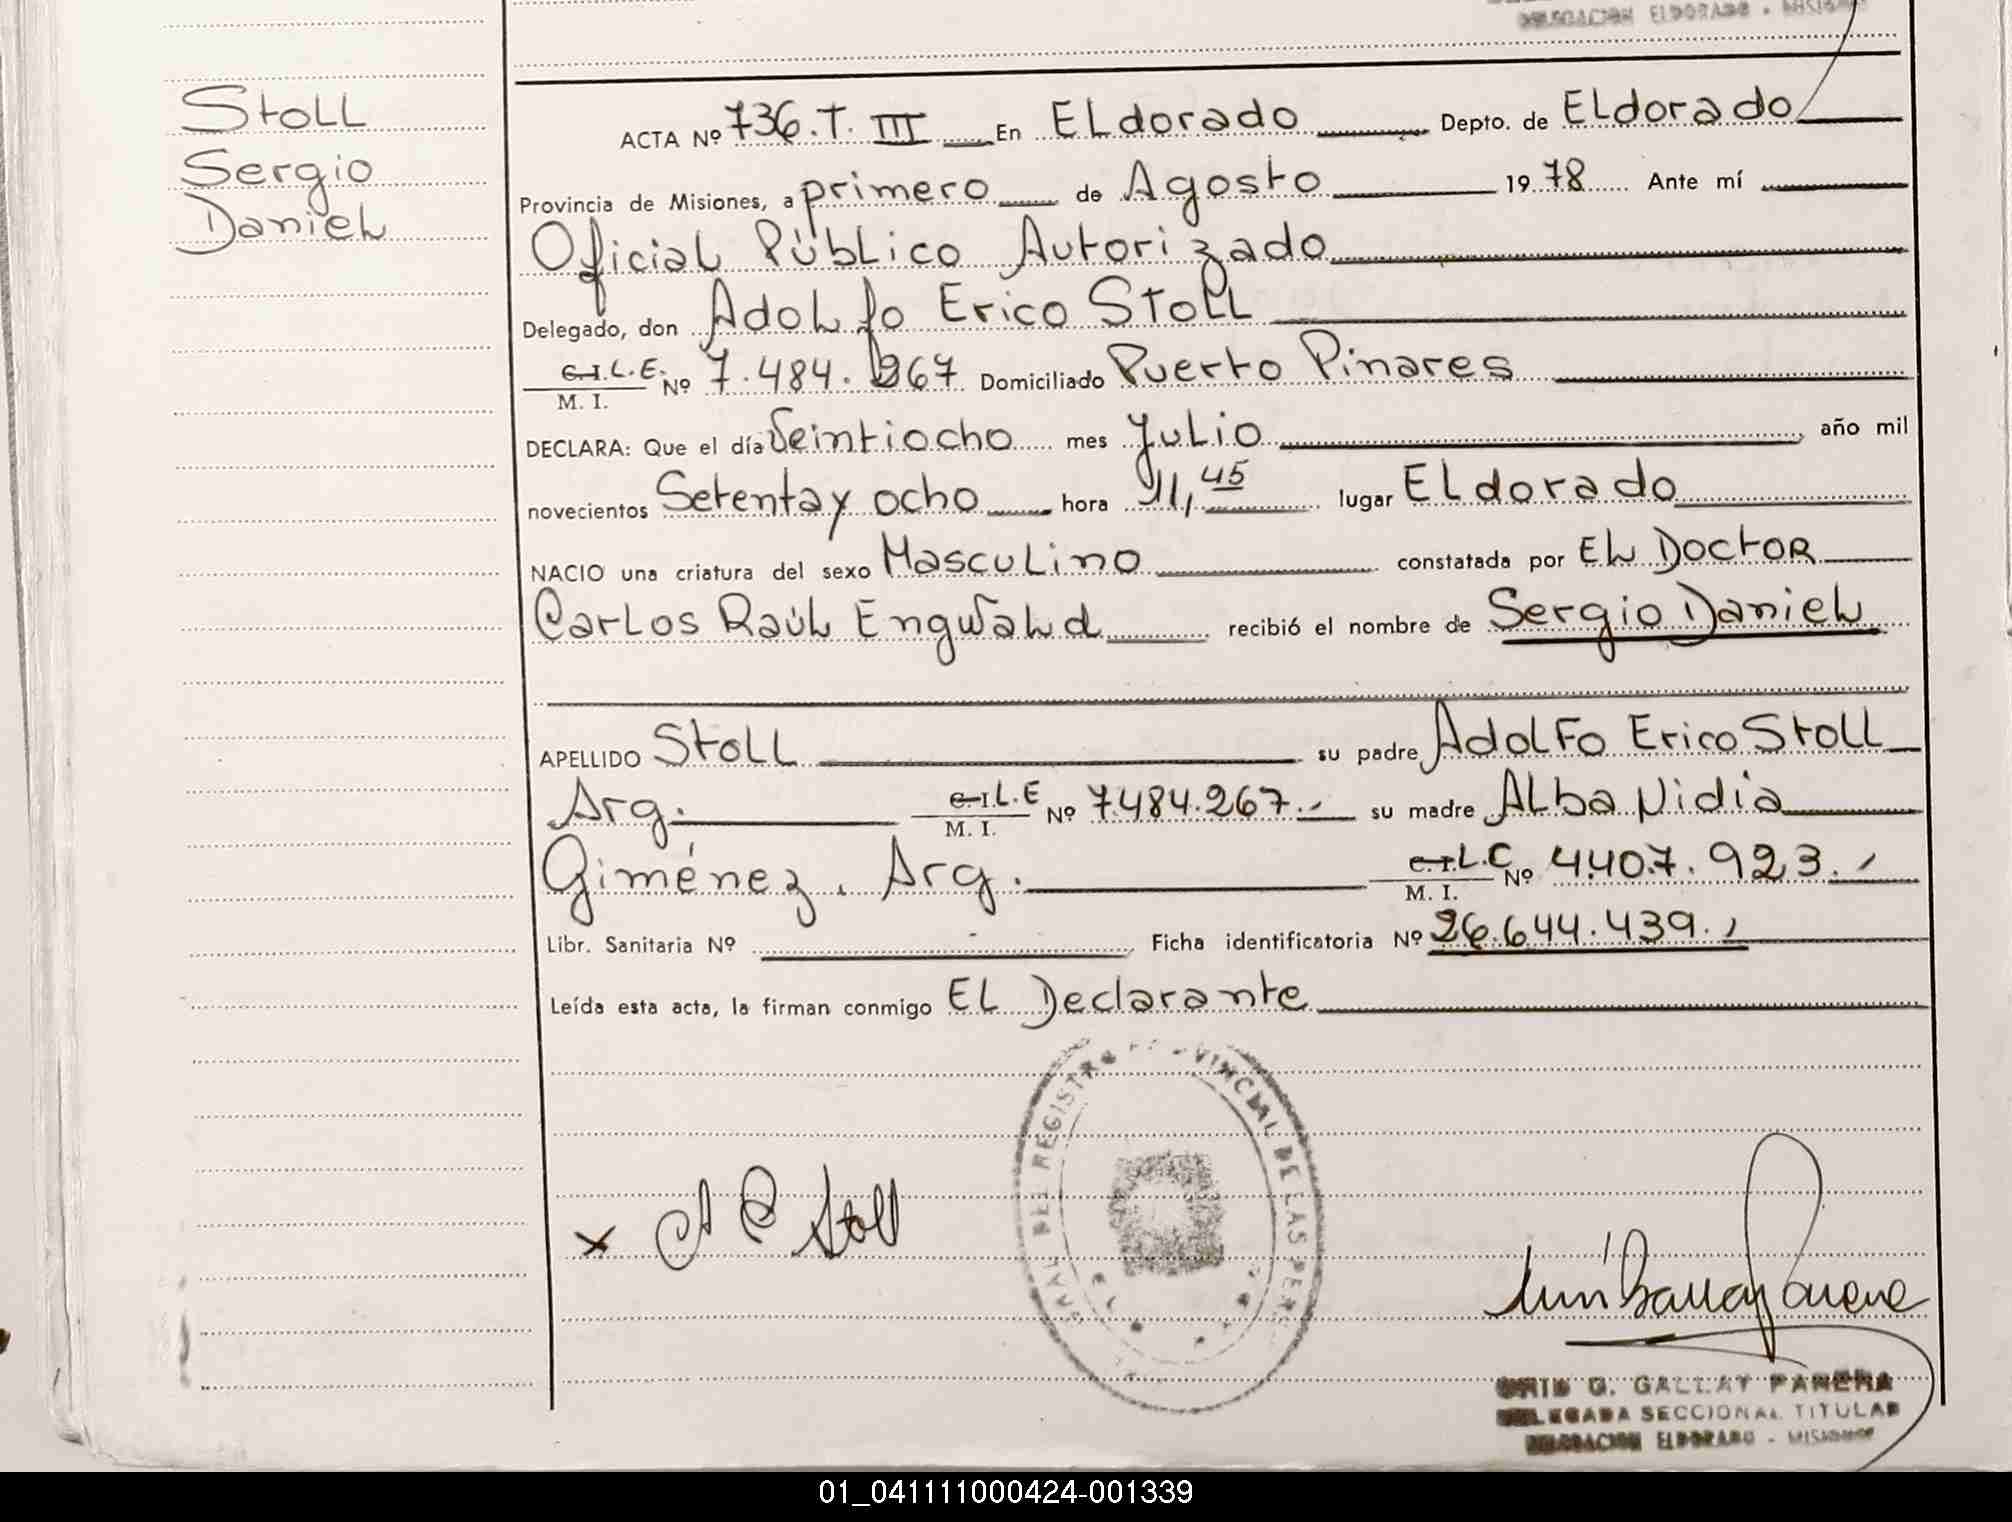 DELEGACION ELDORADO - MISIONES
Stoll
Sergio
Daniel
ACTA Nº 736.T. III En Eldorado Depto. de Eldorado
Provincia de Misiones, a primero de Agosto 1978 Ante mí
Oficial Público Autorizado
Delegado, don Adolfo Erico Stoll
C.I.L.E. Nº 7.484.267 Domiciliado Puerto Pinares
M. I.
DECLARA: Que el día Veintiocho mes Julio año mil
novecientos Setenta y ocho hora 11,45 lugar Eldorado
NACIO una criatura del sexo Masculino constatada por El Doctor
Carlos Raúl Engwald recibió el nombre de Sergio Daniel
APELLIDO Stoll su padre Adolfo Erico Stoll
Arg. C.I.L.E Nº 7.484.267.- su madre Alba Nidia
M. I.
Giménez. Arg. C.I.L.C Nº 4.407.923.-
M. I.
Libr. Sanitaria Nº Ficha identificatoria Nº 26.644.439.-
Leída esta acta, la firman conmigo El Declarante
DEL REGISTRO PROVINCIAL DE LAS PER
x A E Stoll
G. GALLAY PANERA
DELEGADA SECCIONAL TITULAR
DELEGACION ELDORADO - MISIONES
01_041111000424-001339